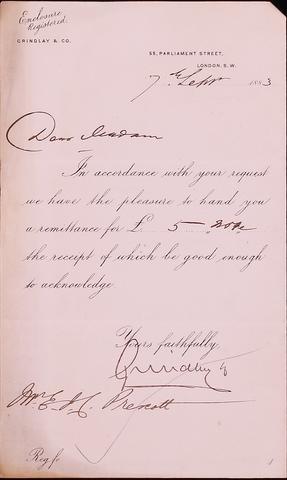 Enclosure
Registered.
GRINDLAY & CO.
55, PARLIAMENT STREET,
LONDON, S.W.
7th Sept 1883
Dear Madam
In accordance with your request
we have the pleasure to hand you
a remittance for £ 5 note
the receipt of which be good enough
to acknowledge.
Yours faithfully,
Grindlay &
Mrs E. J. C. Prescott
Reg. fo